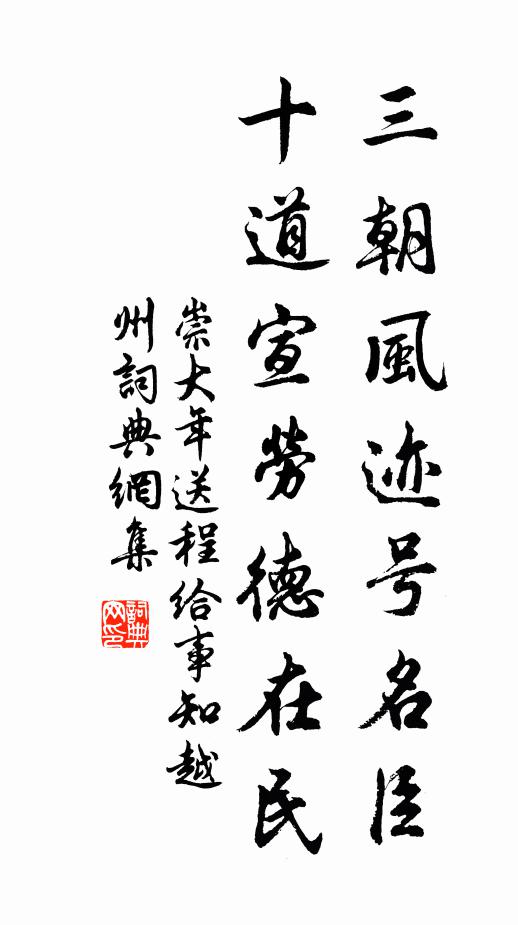 三朝風迹号名臣
十道宣勞德在民
崇大年送程給事知越
州詞典網集
詞典
网印